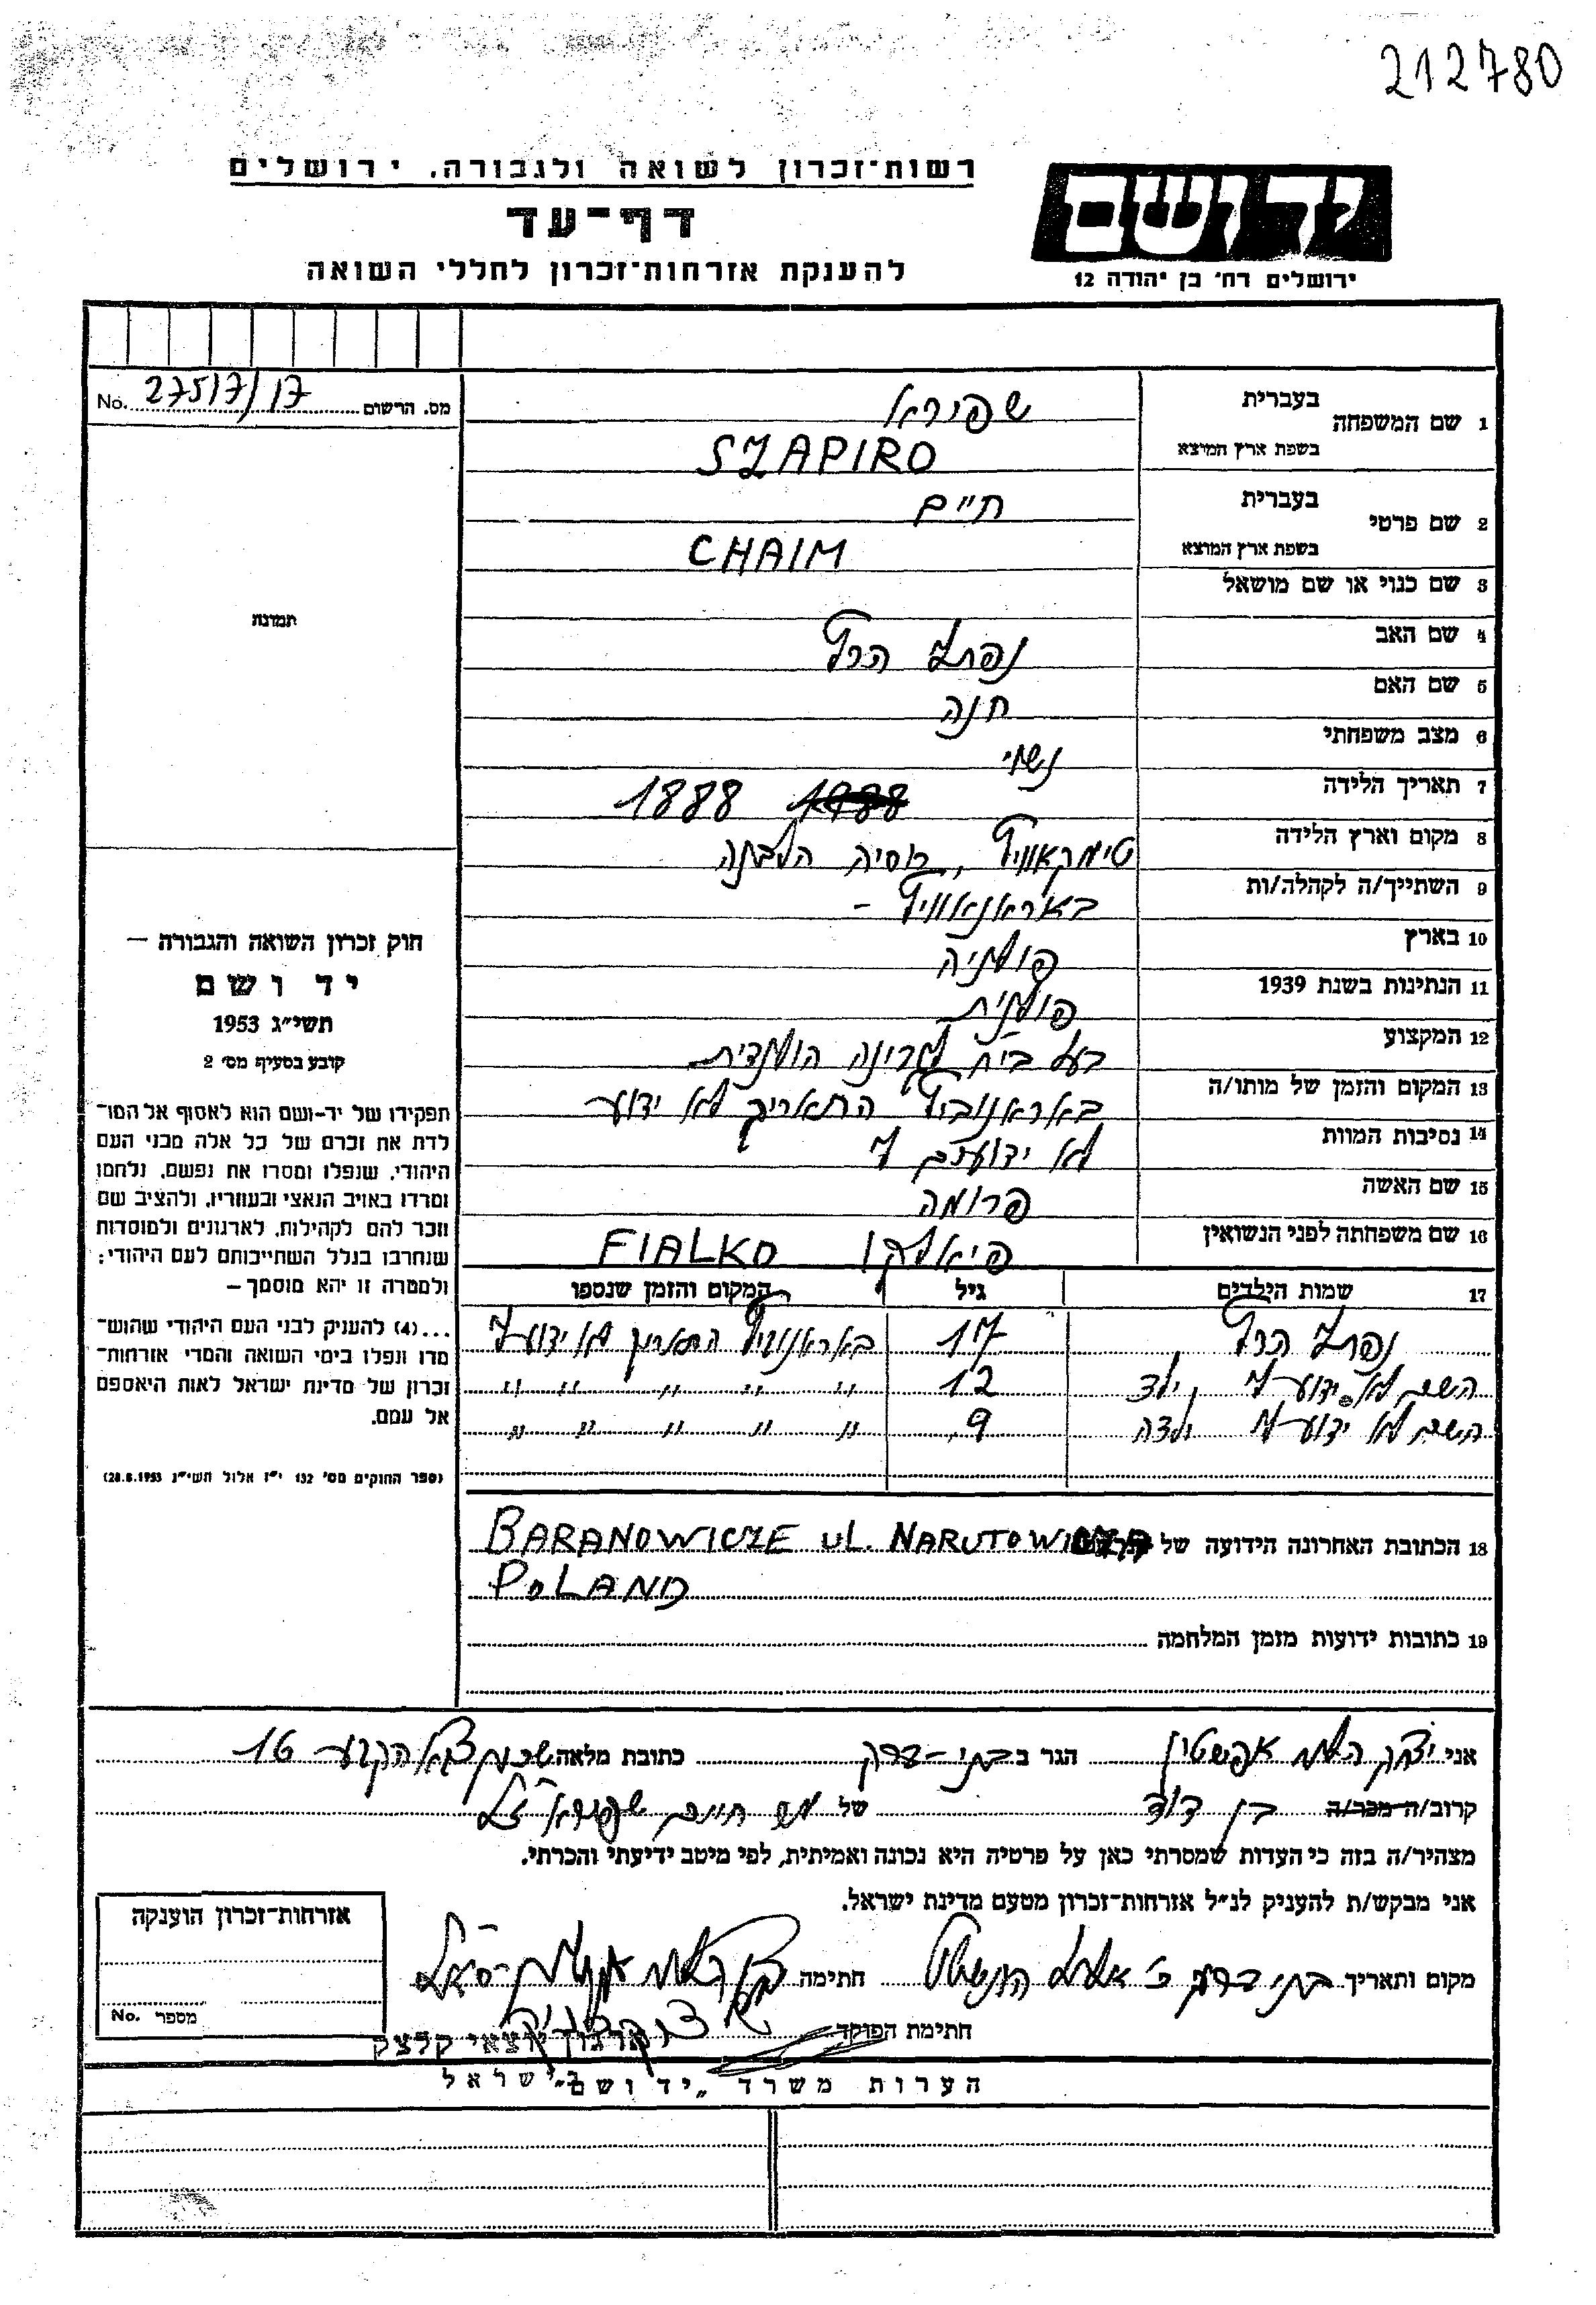 212780
רשות־זכרון לשואה ולגבורה, ירושלים
יד ושם
דף־עד
להענקת אזרחות־זכרון לחללי השואה
ירושלים רח' בן יהודה 12
מס. הרשום 27517/17 No.
1 שם המשפחה בעברית שפירא
בשפת ארץ המוצא SZAPIRO
2 שם פרטי בעברית חיים
בשפת ארץ המוצא CHAIM
3 שם כנוי או שם מושאל
4 שם האב נפתלי הרץ
5 שם האם חנה
6 מצב משפחתי נשוי
7 תאריך הלידה 1888
8 מקום וארץ הלידה טימקאוויץ, רוסיה הלבנה
9 השתייך/ה לקהלה/ות באראנאוויץ –
10 בארץ פולניה
11 הנתינות בשנת 1939 פולנית
12 המקצוע בעל בי״ח הולנדית
13 המקום והזמן של מותו/ה באראנוביץ התאריך לא ידוע
14 נסיבות המוות לא ידועים לי
15 שם האשה פרומה
16 שם משפחתה לפני הנשואין פיאלקו FIALKO
17 שמות הילדים גיל המקום והזמן שנספו
נפתלי הרץ 17 באראנוביץ התאריך לא ידוע לי
השם לא ידוע לי, ילד 12 " " " " "
השם לא ידוע לי ילדה 9 " " " " "
18 הכתובת האחרונה הידועה של BARANOWICZE UL. NARUTOWICZA
POLAND
19 כתובות ידועות מזמן המלחמה
תמונה
חוק זכרון השואה והגבורה –
יד ושם
תשי״ג 1953
קובע בסעיף מס' 2
תפקידו של יד-ושם הוא לאסוף אל המו־
לדת את זכרם של כל אלה מבני העם
היהודי, שנפלו ומסרו את נפשם, נלחמו
ומרדו באויב הנאצי ובעוזריו, ולהציב שם
וזכר להם לקהילות, לארגונים ולמוסדות
שנחרבו בגלל השתייכותם לעם היהודי;
ולמטרה זו יהא מוסמך –
...(4) להעניק לבני העם היהודי שהוש־
מדו ונפלו בימי השואה והמרי אזרחות־
זכרון של מדינת ישראל לאות היאספם
אל עמם.
(ספר החוקים מס' 132 י״ז אלול תשי״ג 28.8.1953)
אני יצחק אפשטין הגר ב בני-ברק כתובת מלאה 16
קרוב/ה מכר/ה בן דוד של מר חיים שפירא ז״ל
מצהיר/ה בזה כי העדות שמסרתי כאן על פרטיה היא נכונה ואמיתית, לפי מיטב ידיעתי והכרתי.
אני מבקש/ת להעניק לנ״ל אזרחות־זכרון מטעם מדינת ישראל.
מקום ותאריך בני ברק חתימה
חתימת הפוקד
ארגון יוצאי קלצק
בישראל
אזרחות־זכרון הוענקה
מספר No.
הערות משרד „יד ושם"